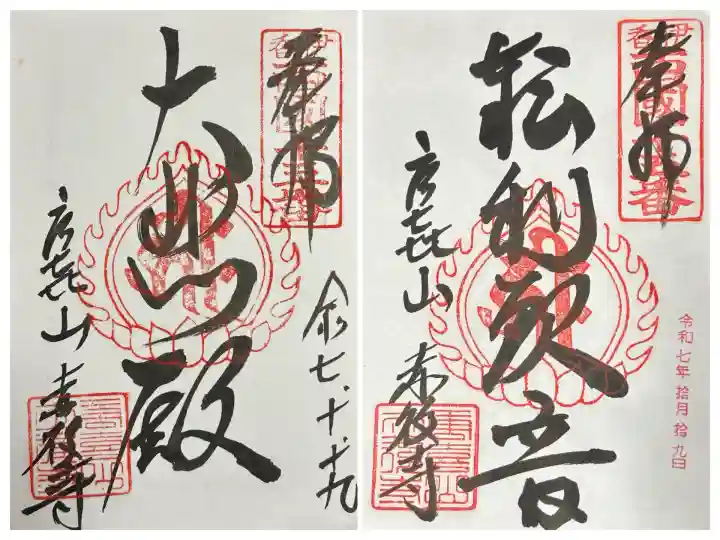 奉拝
大悲殿
唐㐂山 赤後寺
令七、十、十九
奉拝
転利観音
唐㐂山
赤後寺
令和七年 拾月 拾九日